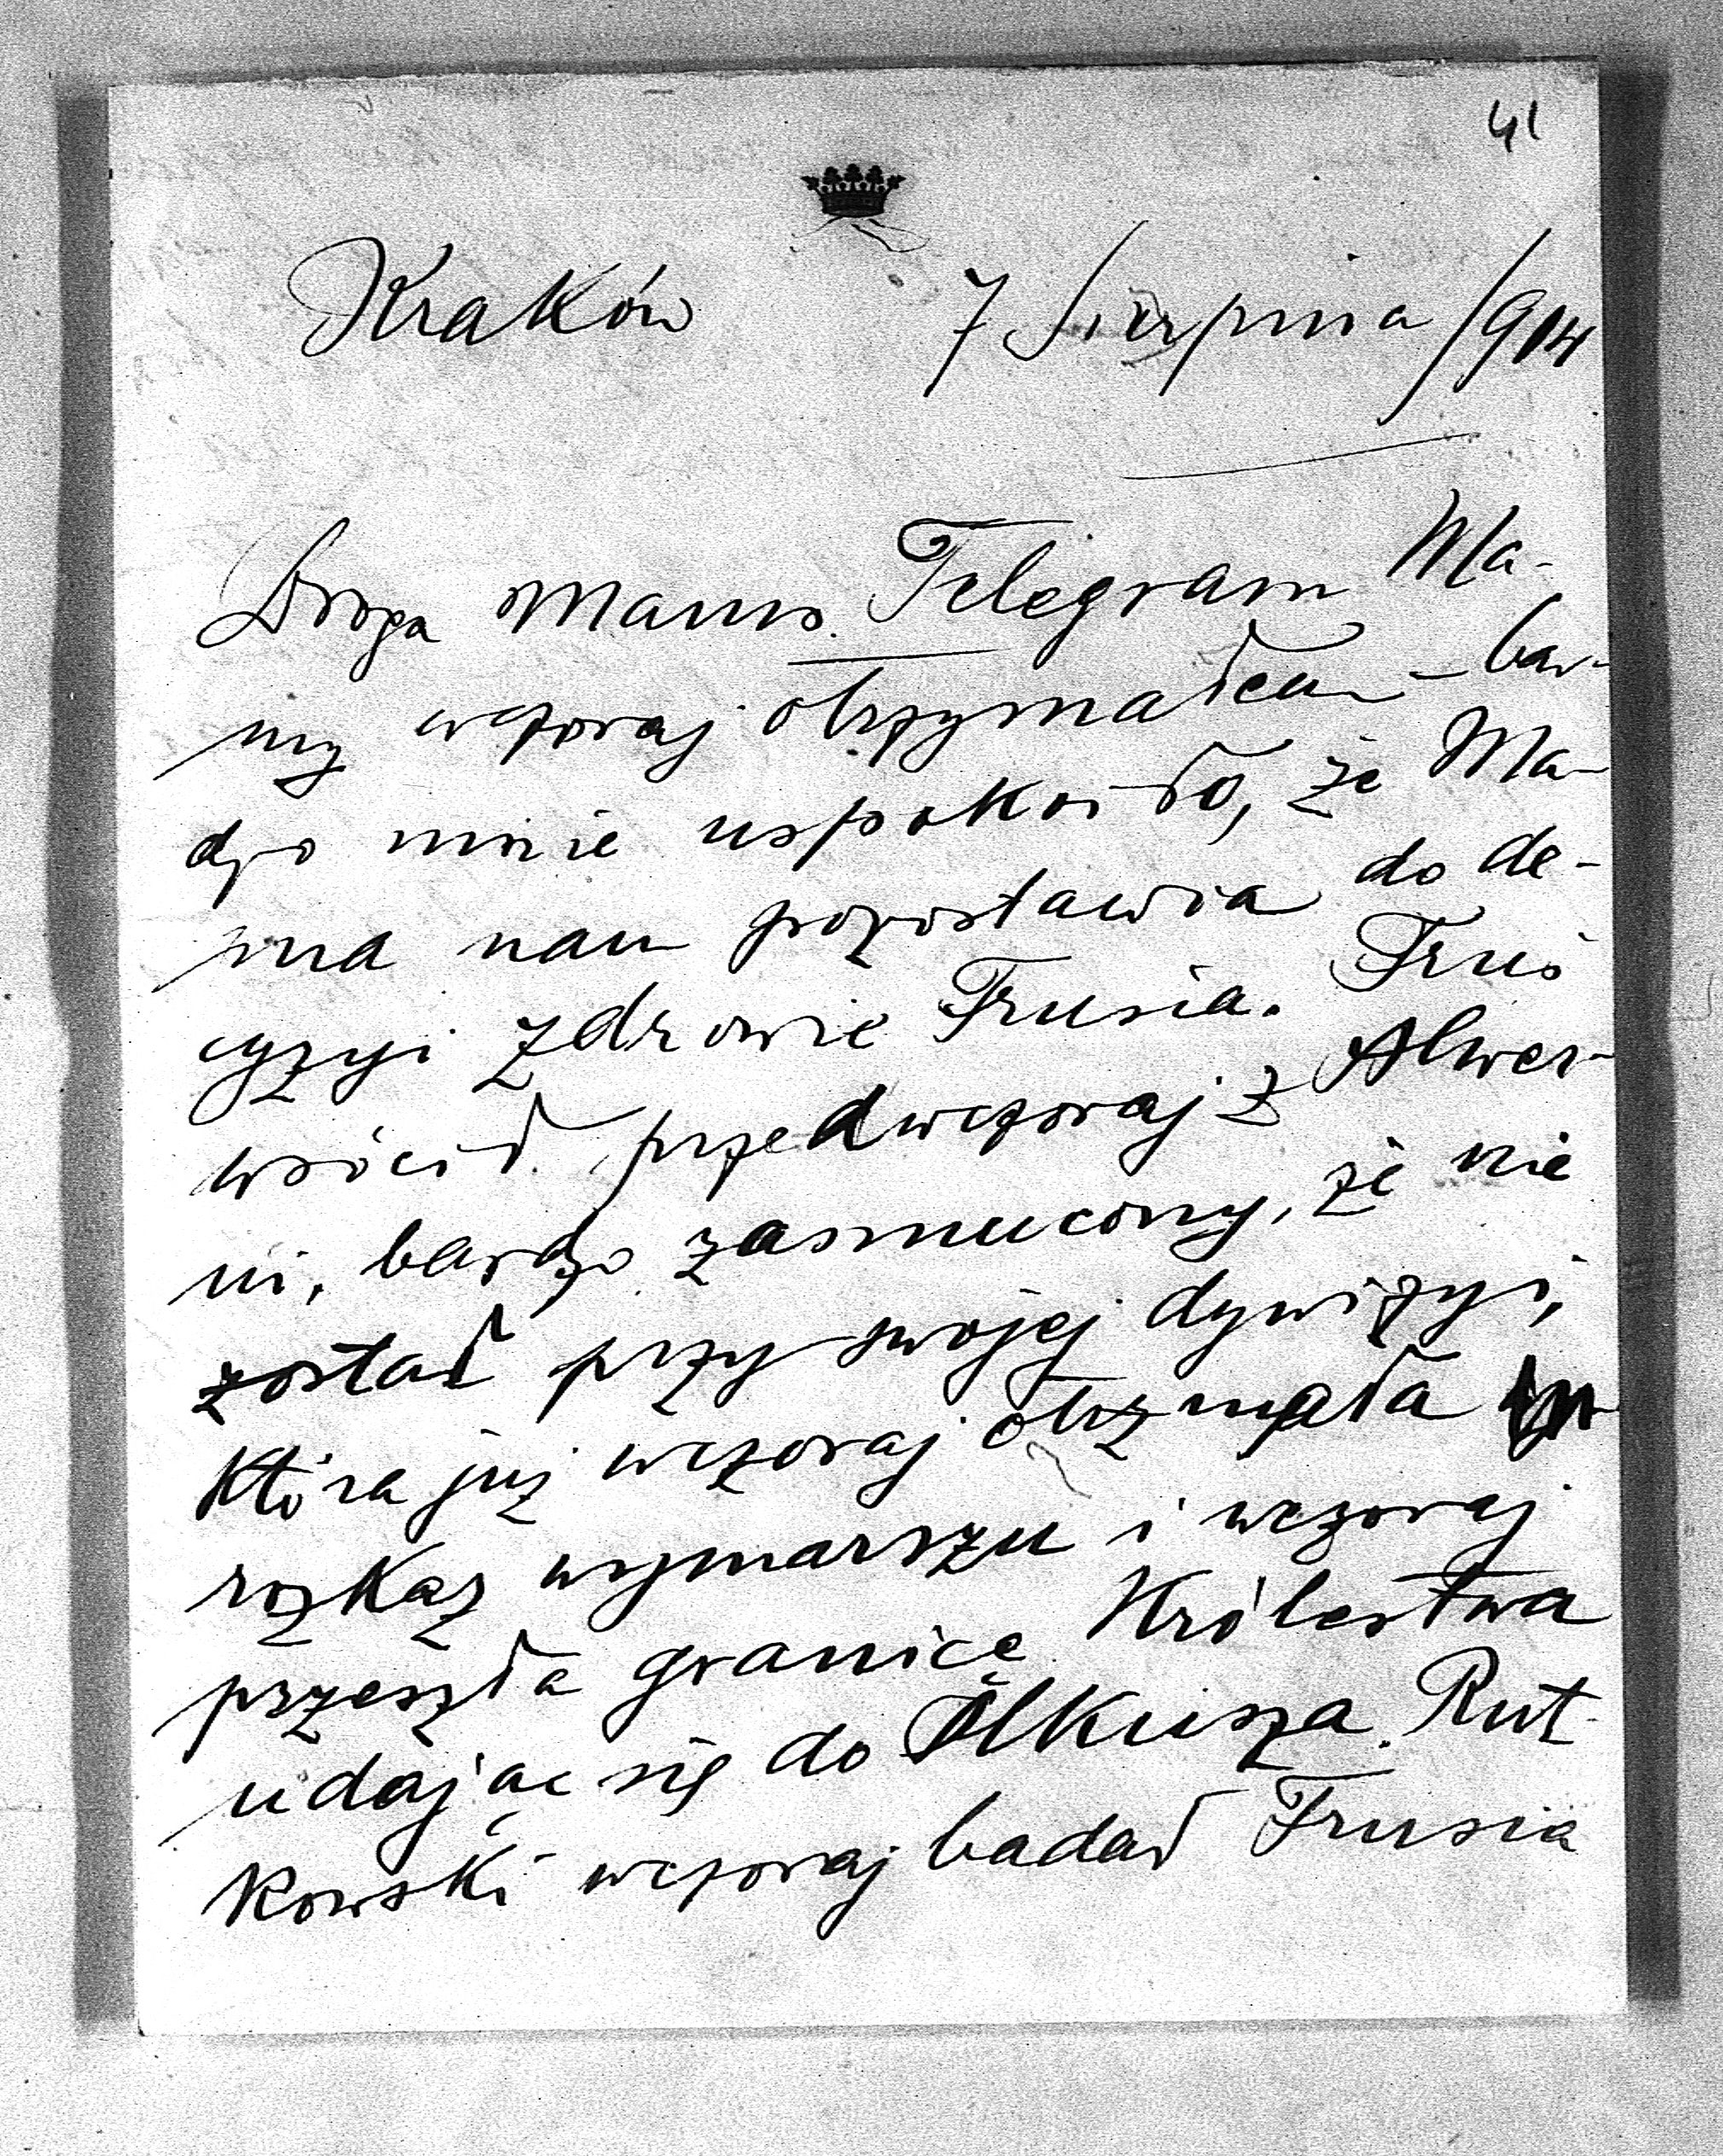 41
Kraków 7 Sierpnia /914
Droga Mamo. Telegram Ma-
my wczoraj otrzymałem – bar-
dzo mnie uspokoiło, że Ma-
ma nam pozostawia do de-
cyzyi zdrowie Trusia. Truś
wrócił przedwczoraj z Alwer-
ni, bardzo zasmucony, że nie
został przy swojej dywizyi,
która już wczoraj otrzymała
rozkaz wymarszu i wczoraj
przeszła granicę Królestwa
udając się do Olkusza. Rut-
kowski wczoraj badał Trusia